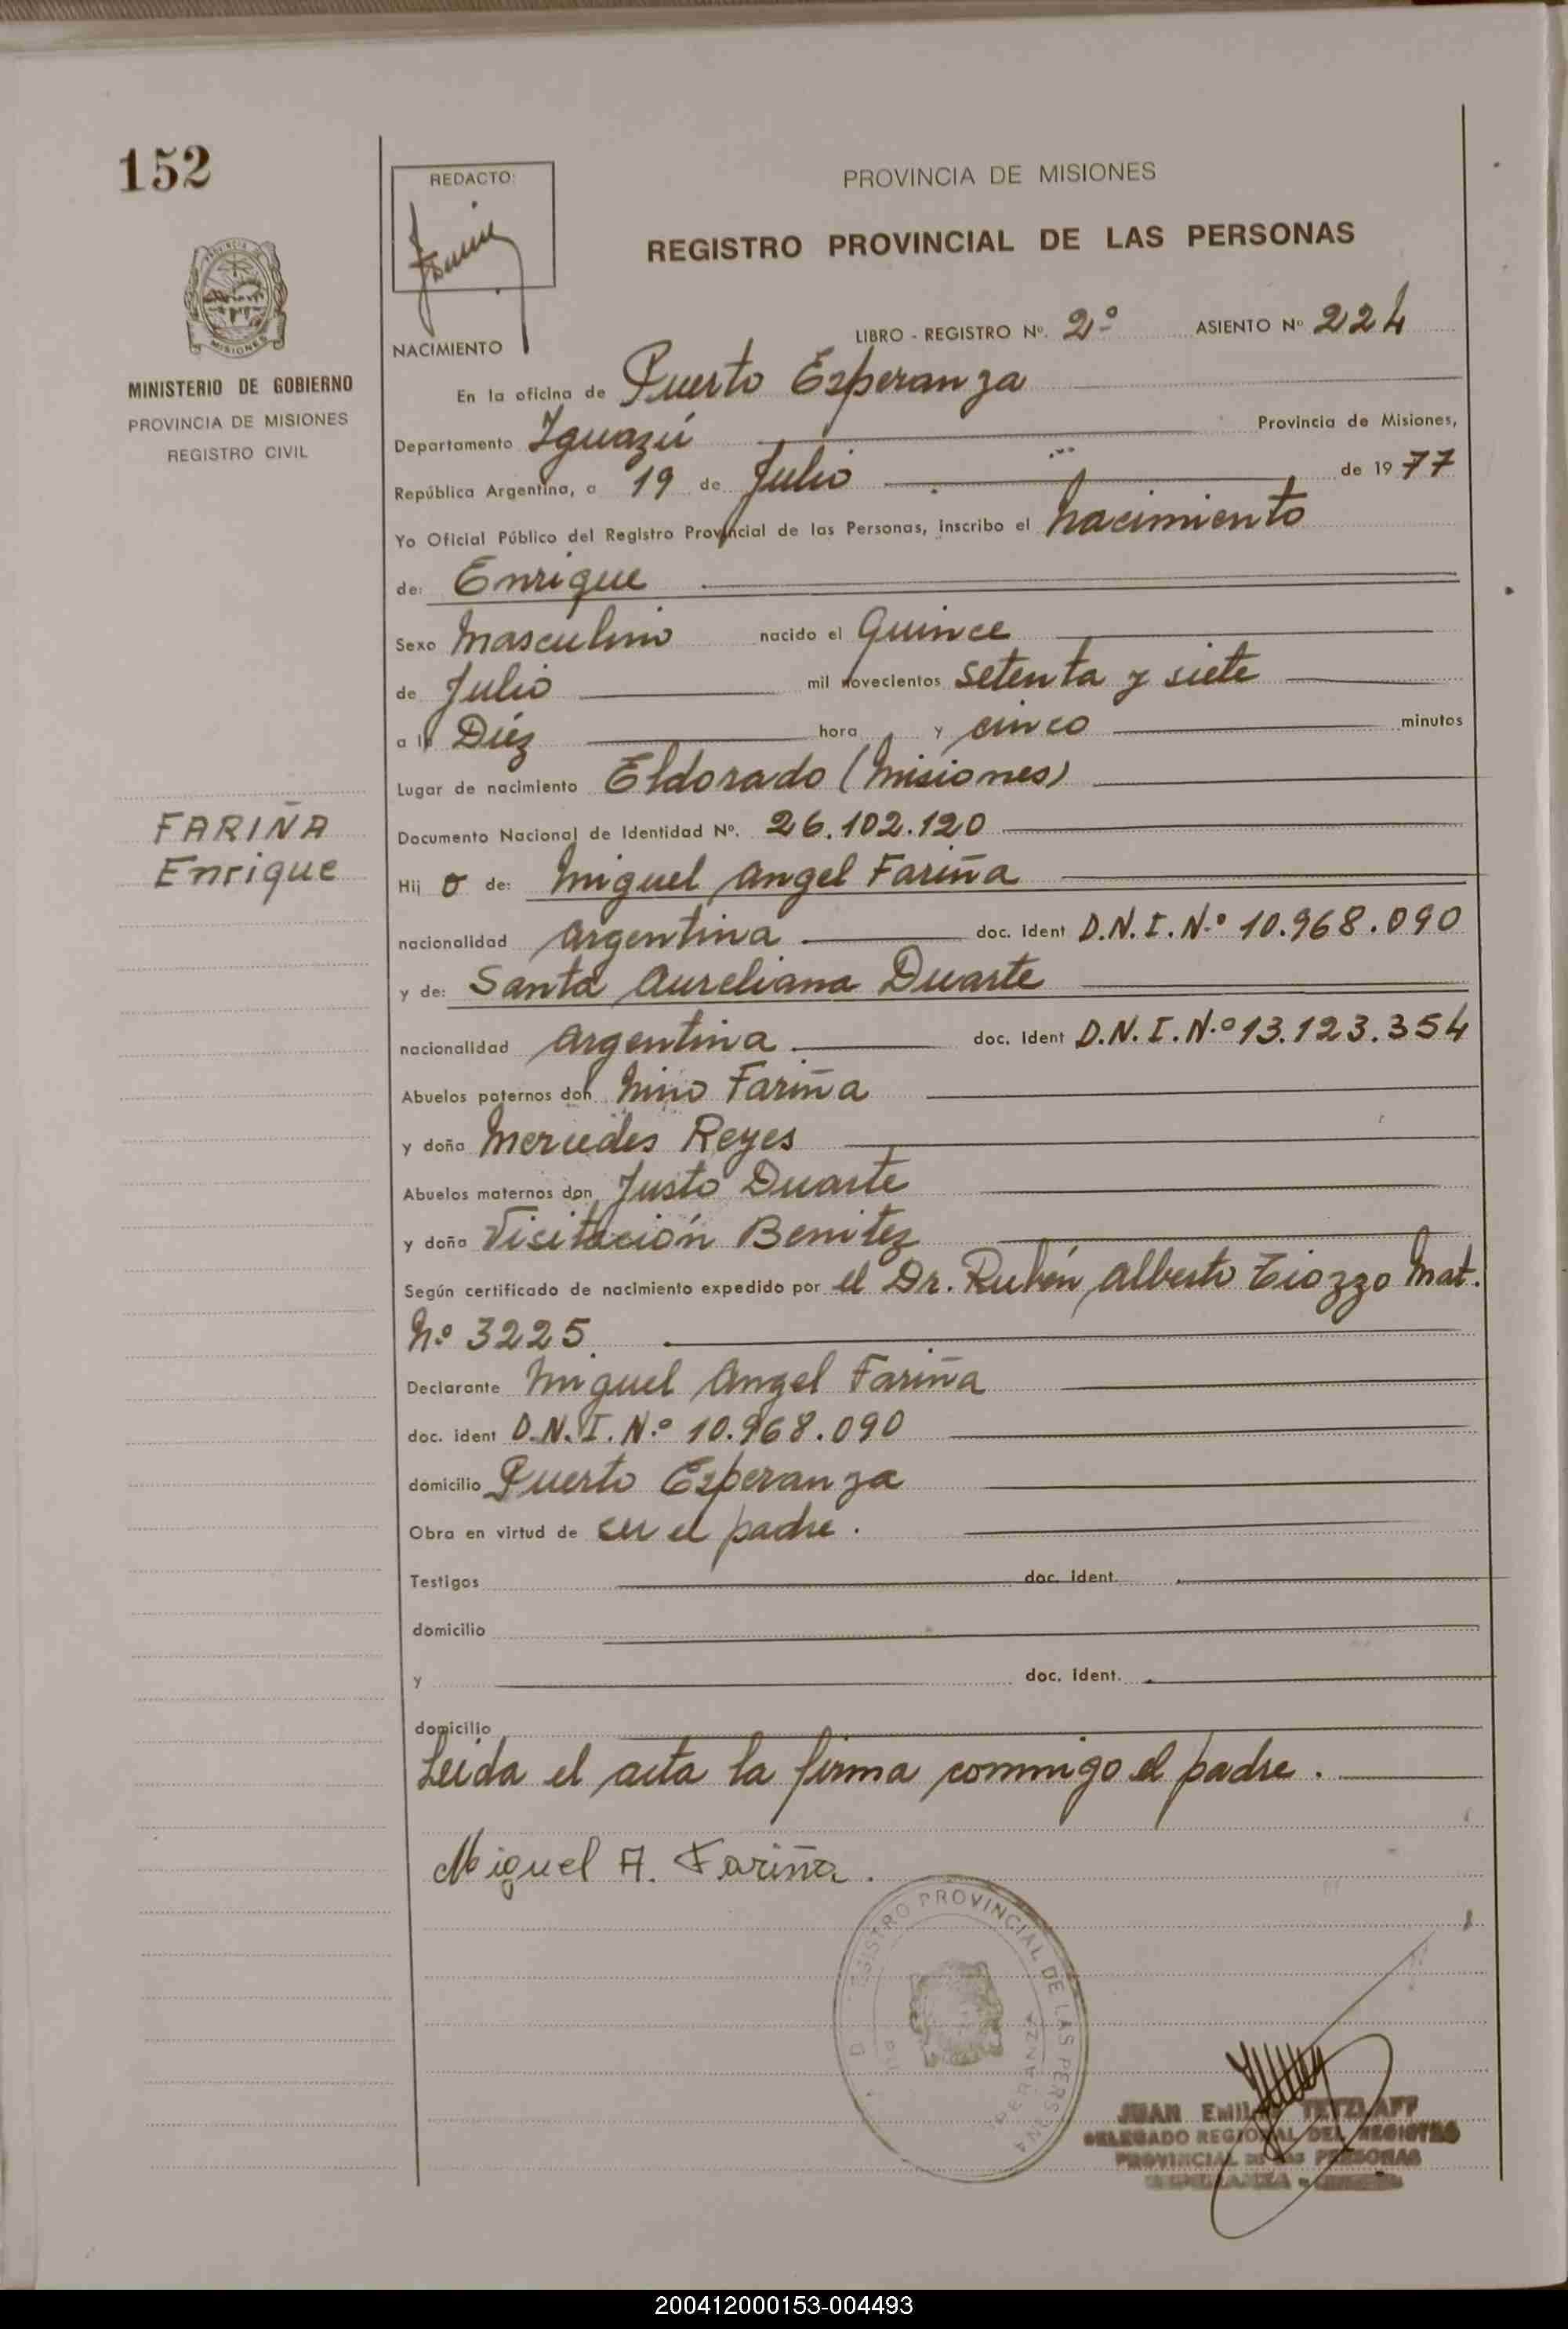 152
REDACTO:
PROVINCIA DE MISIONES
REGISTRO PROVINCIAL DE LAS PERSONAS
MISIONES
MINISTERIO DE GOBIERNO
PROVINCIA DE MISIONES
REGISTRO CIVIL
LIBRO - REGISTRO Nº. 2º ASIENTO Nº 224
NACIMIENTO
En la oficina de Puerto Esperanza
Departamento Iguazú Provincia de Misiones,
República Argentina, a 19 de Julio de 1977
Yo Oficial Público del Registro Provincial de las Personas, inscribo el nacimiento
de: Enrique
Sexo Masculino nacido el Quince
de Julio mil novecientos setenta y siete
a la Diéz hora y cinco minutos
Lugar de nacimiento Eldorado (Misiones)
FARIÑA
Enrique
Documento Nacional de Identidad Nº. 26.102.120
Hij o de: Miguel Angel Fariña
nacionalidad Argentina doc. Ident D.N.I.N.º 10.968.090
y de: Santa Aureliana Duarte
nacionalidad Argentina doc. Ident D.N.I.N.º 13.123.354
Abuelos paternos don Nino Fariña
y doña Mercedes Reyes
Abuelos maternos don Justo Duarte
y doña Visitación Benitez
Según certificado de nacimiento expedido por el Dr. Rubén Alberto Tiozzo Mat.
Nº 3225
Declarante Miguel Angel Fariña
doc. ident D.N.I.N.º 10.968.090
domicilio Puerto Esperanza
Obra en virtud de ser el padre.
Testigos doc. ident.
domicilio
y doc. ident.
domicilio
Leida el acta la firma conmigo el padre.
Miguel A. Fariña.
REGISTRO PROVINCIAL DE LAS PERSONA
JUAN EMILIO TETZLAFF
DELEGADO REGIONAL DEL REGISTRO
PROVINCIAL DE LAS PERSONAS
200412000153-004493